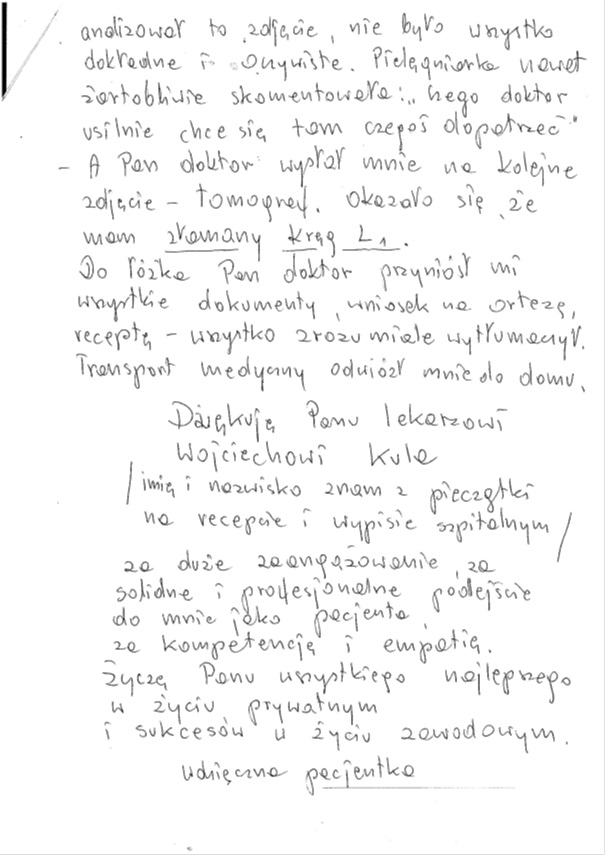 analizował to zdjęcie, nie było wszystko
dokładne i oczywiste. Pielęgniarka nawet
żartobliwie skomentowała: „czego doktor
usilnie chce się tam czegoś dopatrzeć"
- A Pan doktor wysłał mnie na kolejne
zdjęcie - tomograf. Okazało się, że
mam złamany kręg L1.
Do łóżka Pan doktor przyniósł mi
wszystkie dokumenty, wniosek na ortezę,
receptę - wszystko zrozumiale wytłumaczył.
Transport medyczny odwiózł mnie do domu.
Dziękuję Panu lekarzowi
Wojciechowi Kula
/imię i nazwisko znam z pieczątki
na recepcie i wypisie szpitalnym/
za duże zaangażowanie, za
solidne i profesjonalne podejście
do mnie jako pacjenta,
za kompetencję i empatię.
Życzę Panu wszystkiego najlepszego
w życiu prywatnym
i sukcesów w życiu zawodowym.
Wdzięczna pacjentka